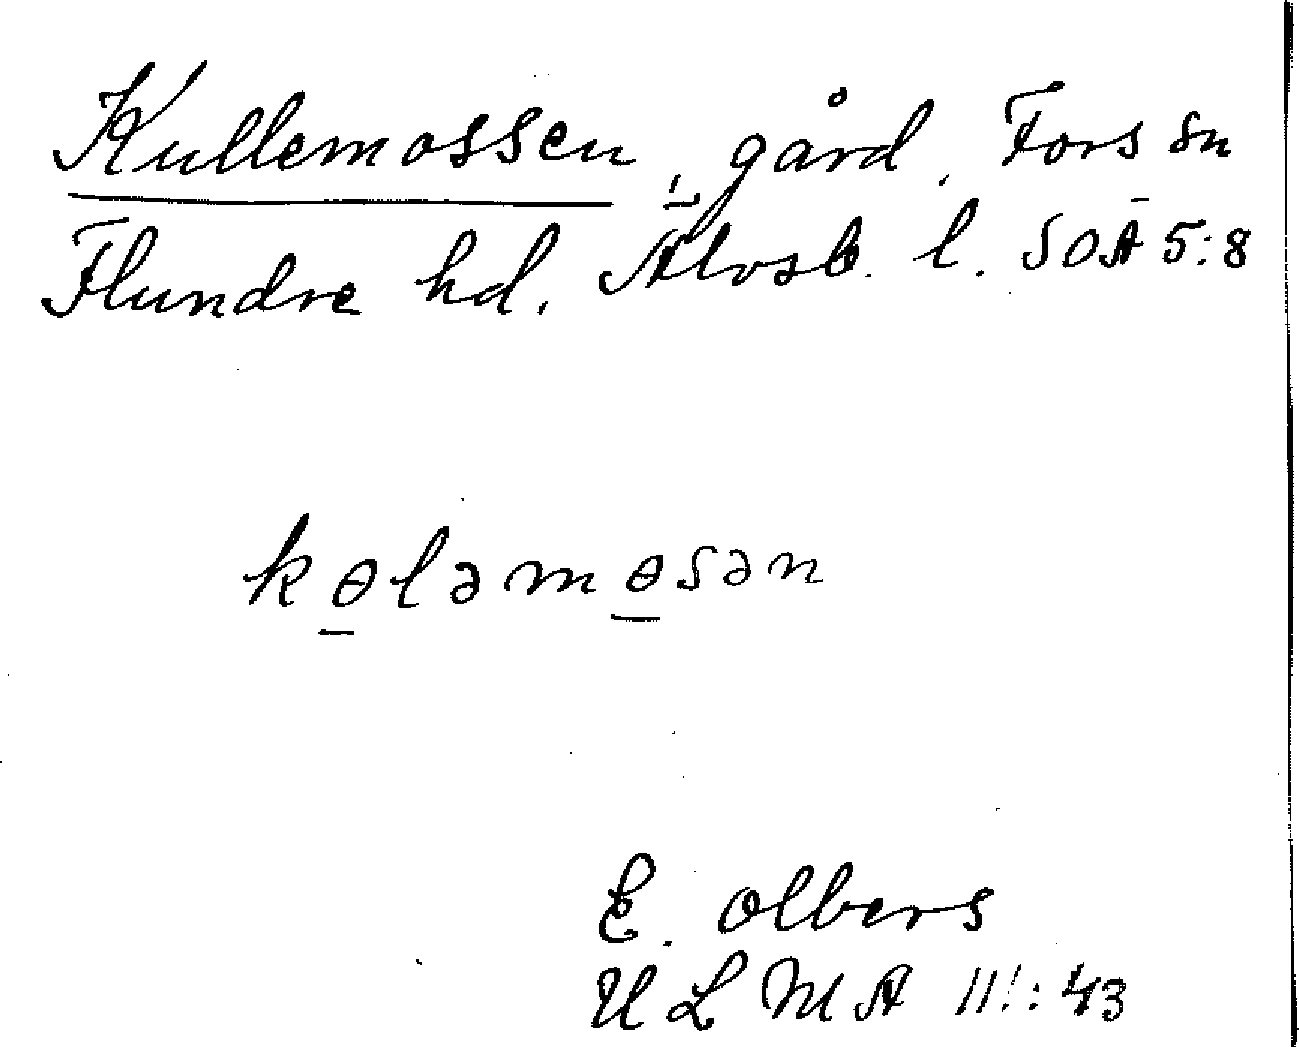 Kullemossen, gård, Fors sn
Flundre hd. Älvsb. l. SOÄ 5:8
kɵləmɵsən
E. Olbers
ULMA 111:43